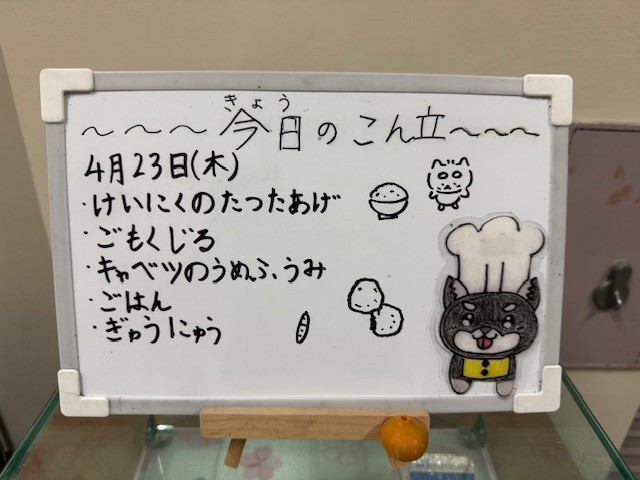 きょう
～～～今日のこん立～～～
4月23日(木)
・けいにくのたつたあげ
・ごもくじる
・キャベツのうめふうみ
・ごはん
・ぎゅうにゅう